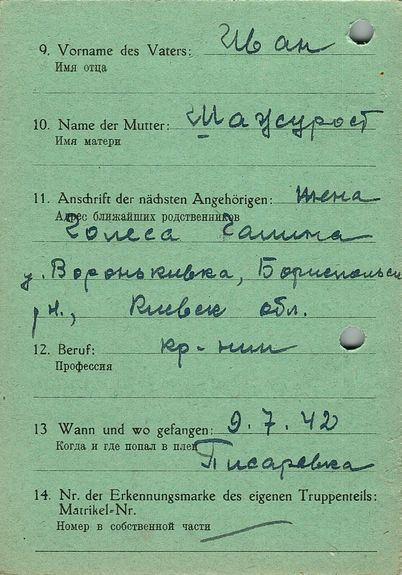 9. Vorname des Vaters: Иван
Имя отца
10. Name der Mutter:
Имя матери
11. Anschrift der nächsten Angehörigen: жена
Адрес ближайших родственников
Колеса Галина
Вороньківка, Бориспольск
рн., Киевск обл.
12. Beruf: кр-нин
Профессия
13 Wann und wo gefangen: 9.7.42
Когда и где попал в плен
Писаревка
14. Nr. der Erkennungsmarke des eigenen Truppenteils:
Matrikel-Nr.
Номер в собственной части